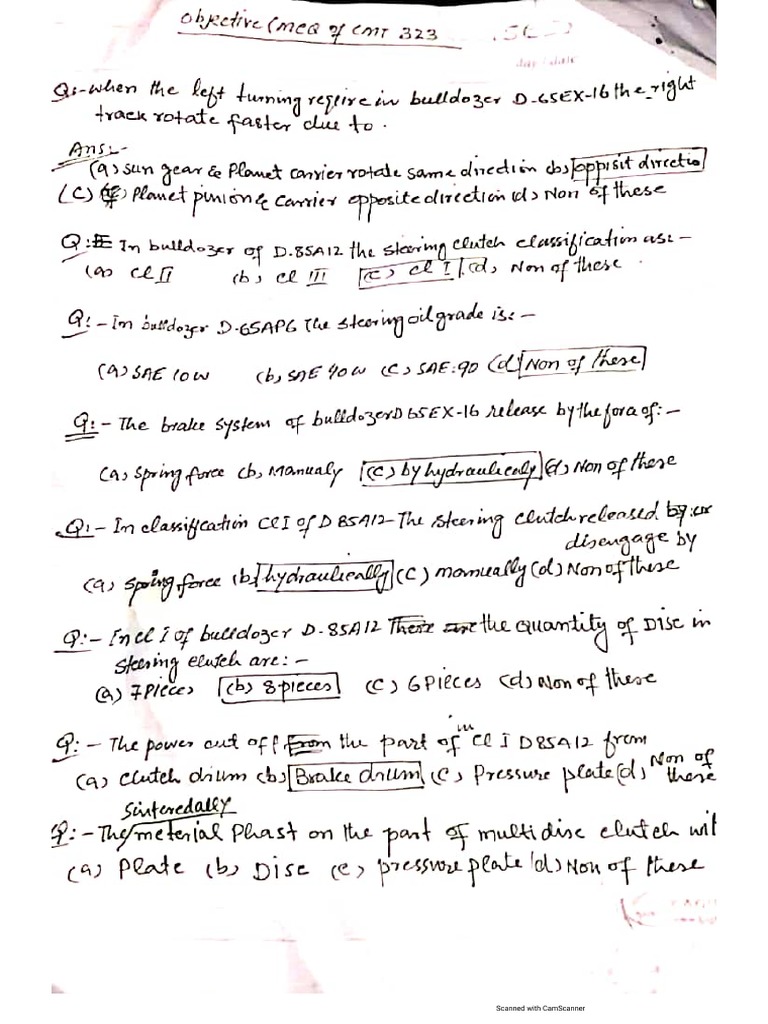 Objective (MCQ of CMT 323
Q:- When the left turning reqire in bulldozer D-65EX-16 the right
track rotate faster due to.
Ans:-
(a) sun gear & Planet carrier rotate same direction (b) oppisit directio
(c) Planet pinion & carrier opposite direction (d) Non of these
Q:- In bulldozer of D.85A12 the steering clutch classification as:-
(a) Cl II (b) Cl III (c) Cl I (d) Non of these
Q:- In bulldozer D-65AP6 The steering oil grade is:-
(a) SAE 10W (b) SAE 40W (c) SAE:90 (d) Non of these
Q:- The brake system of bulldozer D65EX-16 release by the fora of:-
(a) Spring force (b) Manualy (c) by hydraulicaly (d) Non of these
Q:- In classification Cl I of D85A12- The steering clutch released by or
disengage by
(a) spring force (b) hydraulically (c) manually (d) Non of these
Q:- In Cl I of bulldozer D-85A12 the quantity of Disc in
steering clutch are:-
(a) 7 Pieces (b) 8 pieces (c) 6 Pieces (d) Non of these
Q:- The power cut off the part of in Cl I D85A12 from
(a) Clutch drum (b) Brake drum (c) Pressure plate (d) Non of
these
Sinteredally
Q:- The meterial Phast on the part of multi disc clutch wit
(a) Plate (b) Disc (c) pressure plate (d) Non of these
Scanned with CamScanner